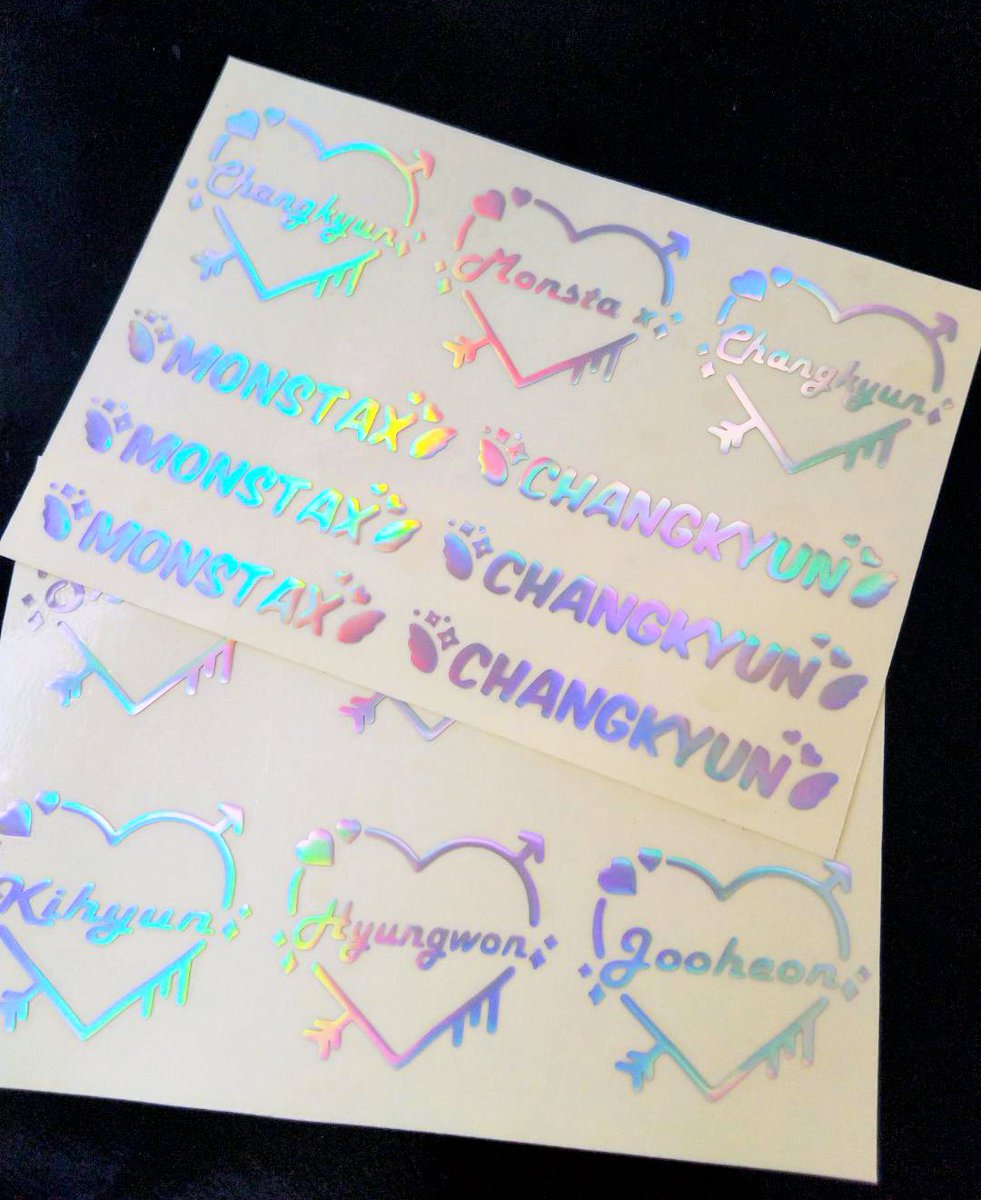 Changkyun
Monsta x
Changkyun
MONSTAX
MONSTAX
MONSTAX
CHANGKYUN
CHANGKYUN
CHANGKYUN
Kihyun
Hyungwon
Jooheon